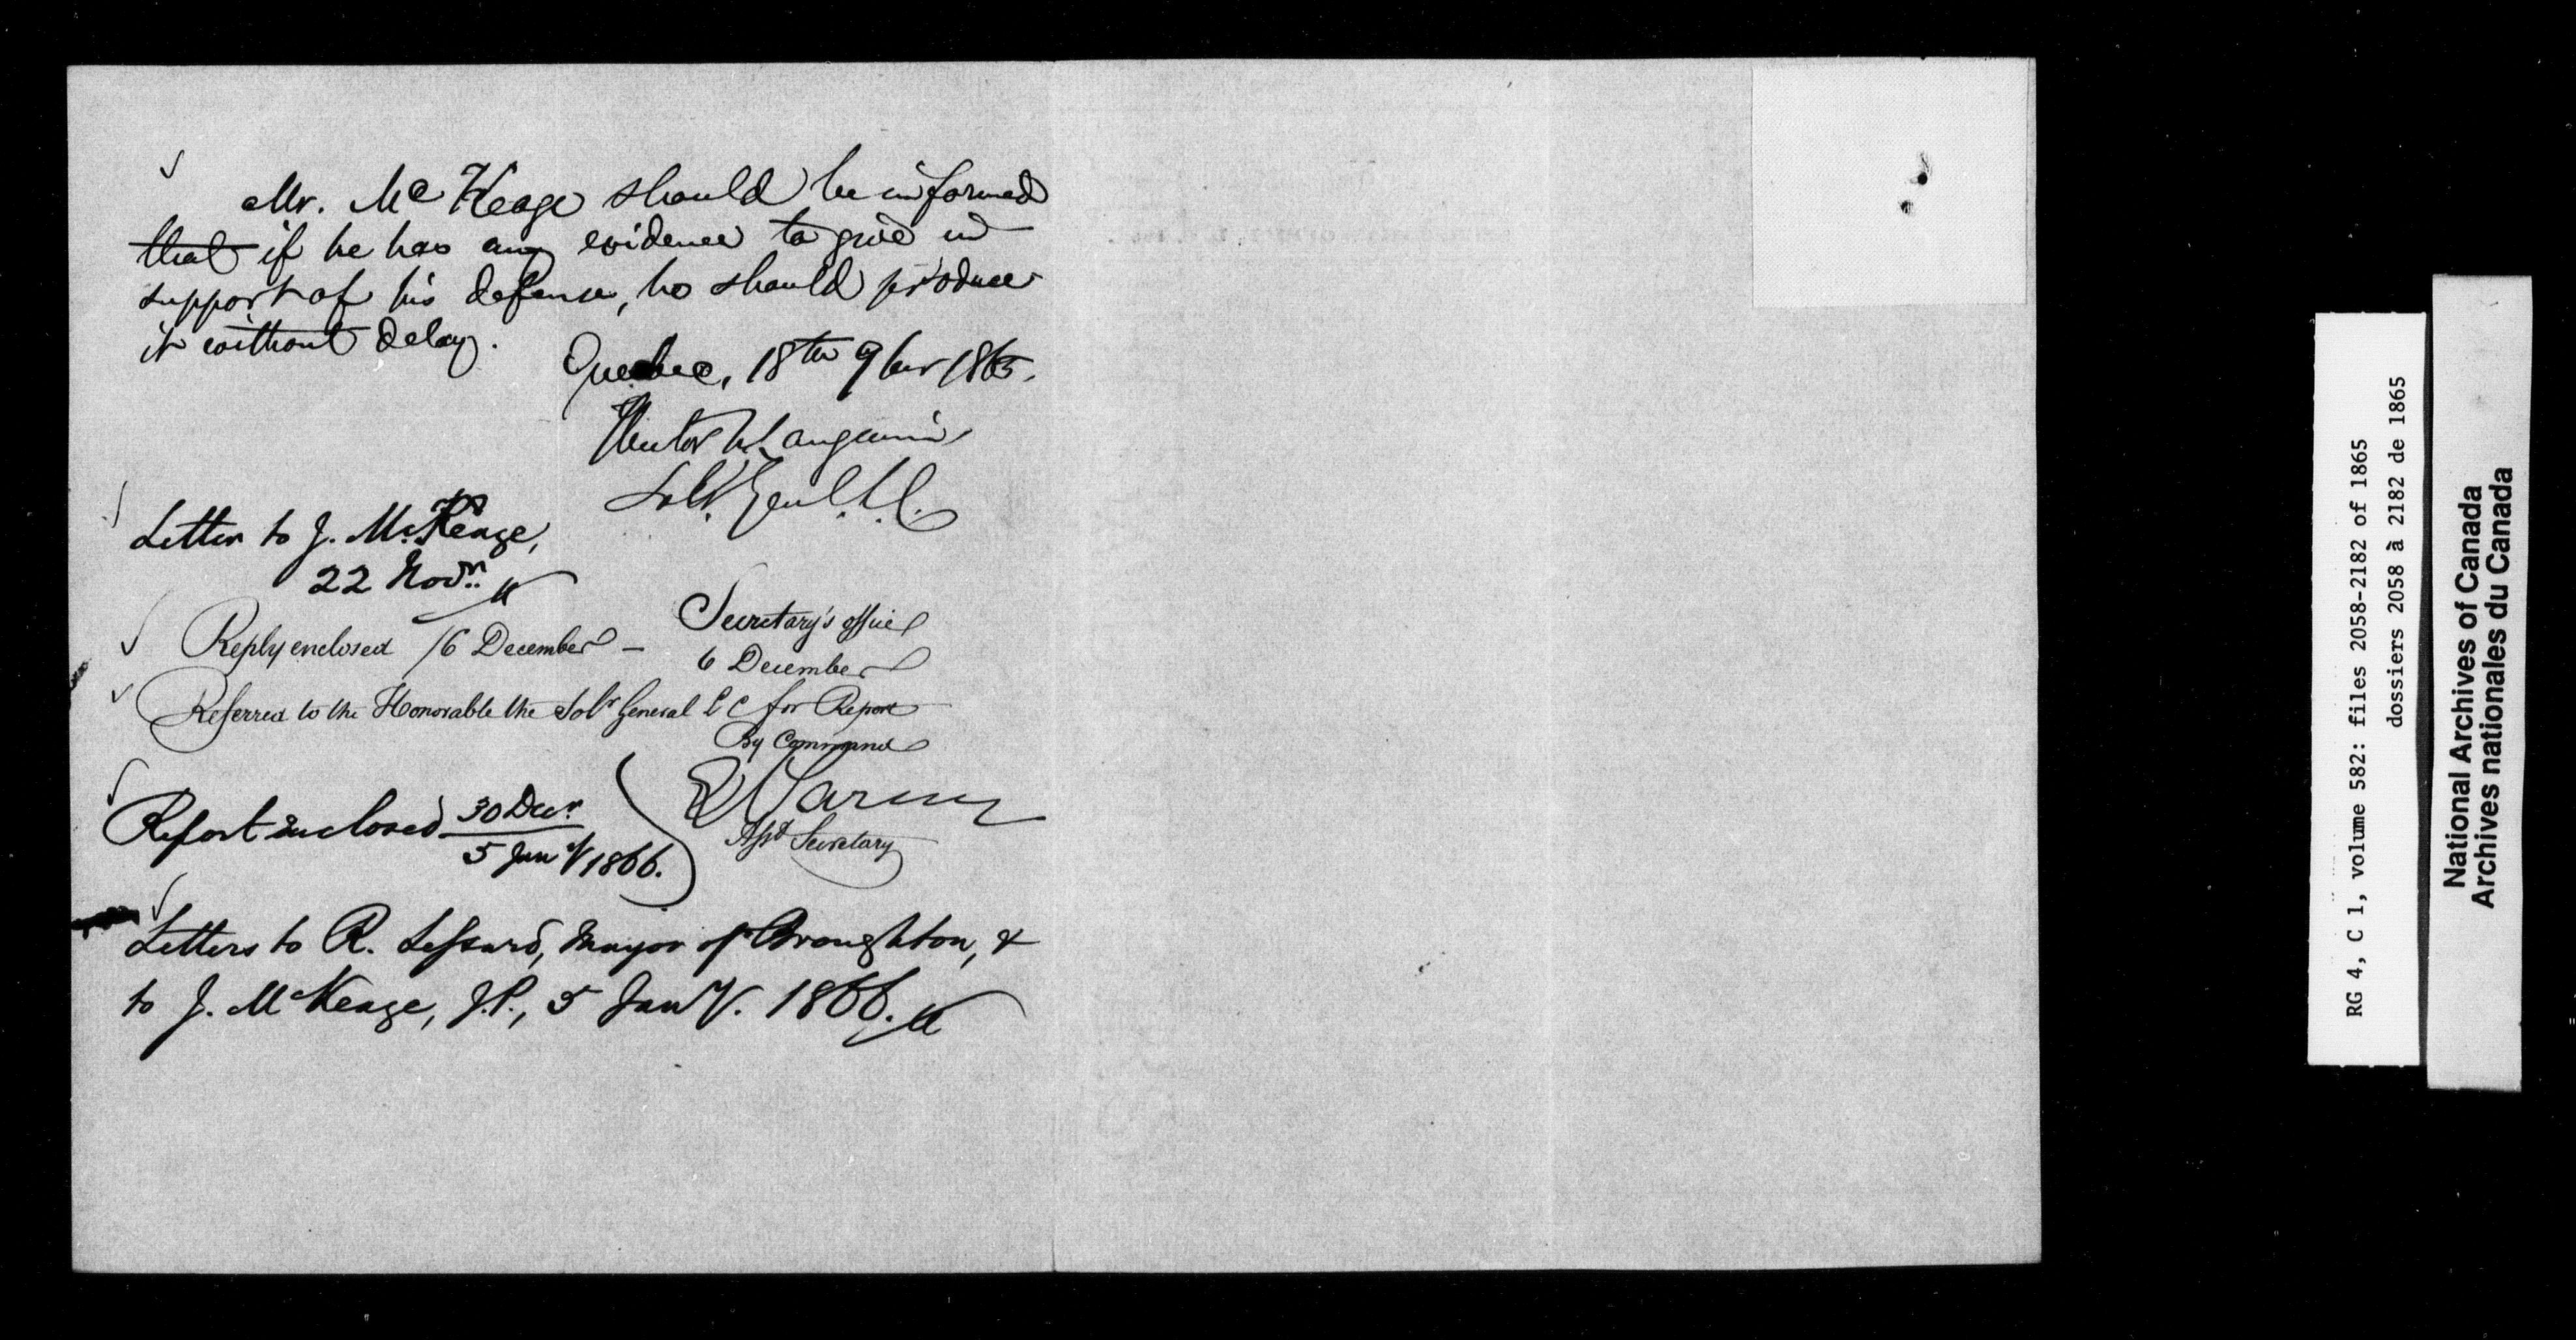 Mr. McKeage should be informed
that if he has any evidence to give in
support of his defense, he should produce
it without delay.
Quebec, 18th 9ber 1865.
Hector L. Langevin
Solr. Genl. L.C.
Letter to J. McKeage,
22 Novr.
Reply enclosed /6 December –
Secretary's office
6 December
Referred to the Honorable the Solr General L C for Report
By Command
E Parent
Asst Secretary
Report enclosed 30 Decr.
5 Jany 1866.
Letters to R. Lessard, Mayor of Broughton, &
to J. McKeage, J.P., 5 Jany. 1866.
RG 4, C 1, volume 582: files 2058-2182 of 1865
dossiers 2058 à 2182 de 1865
National Archives of Canada
Archives nationales du Canada